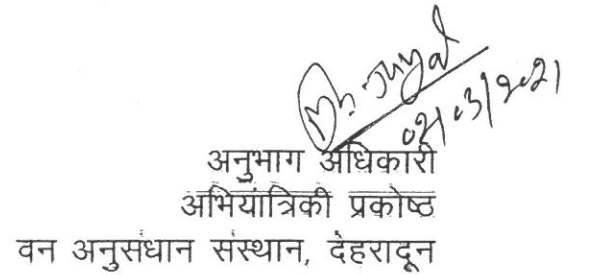 02/03/2021
अनुभाग अधिकारी
अभियांत्रिकी प्रकोष्ठ
वन अनुसंधान संस्थान, देहरादून